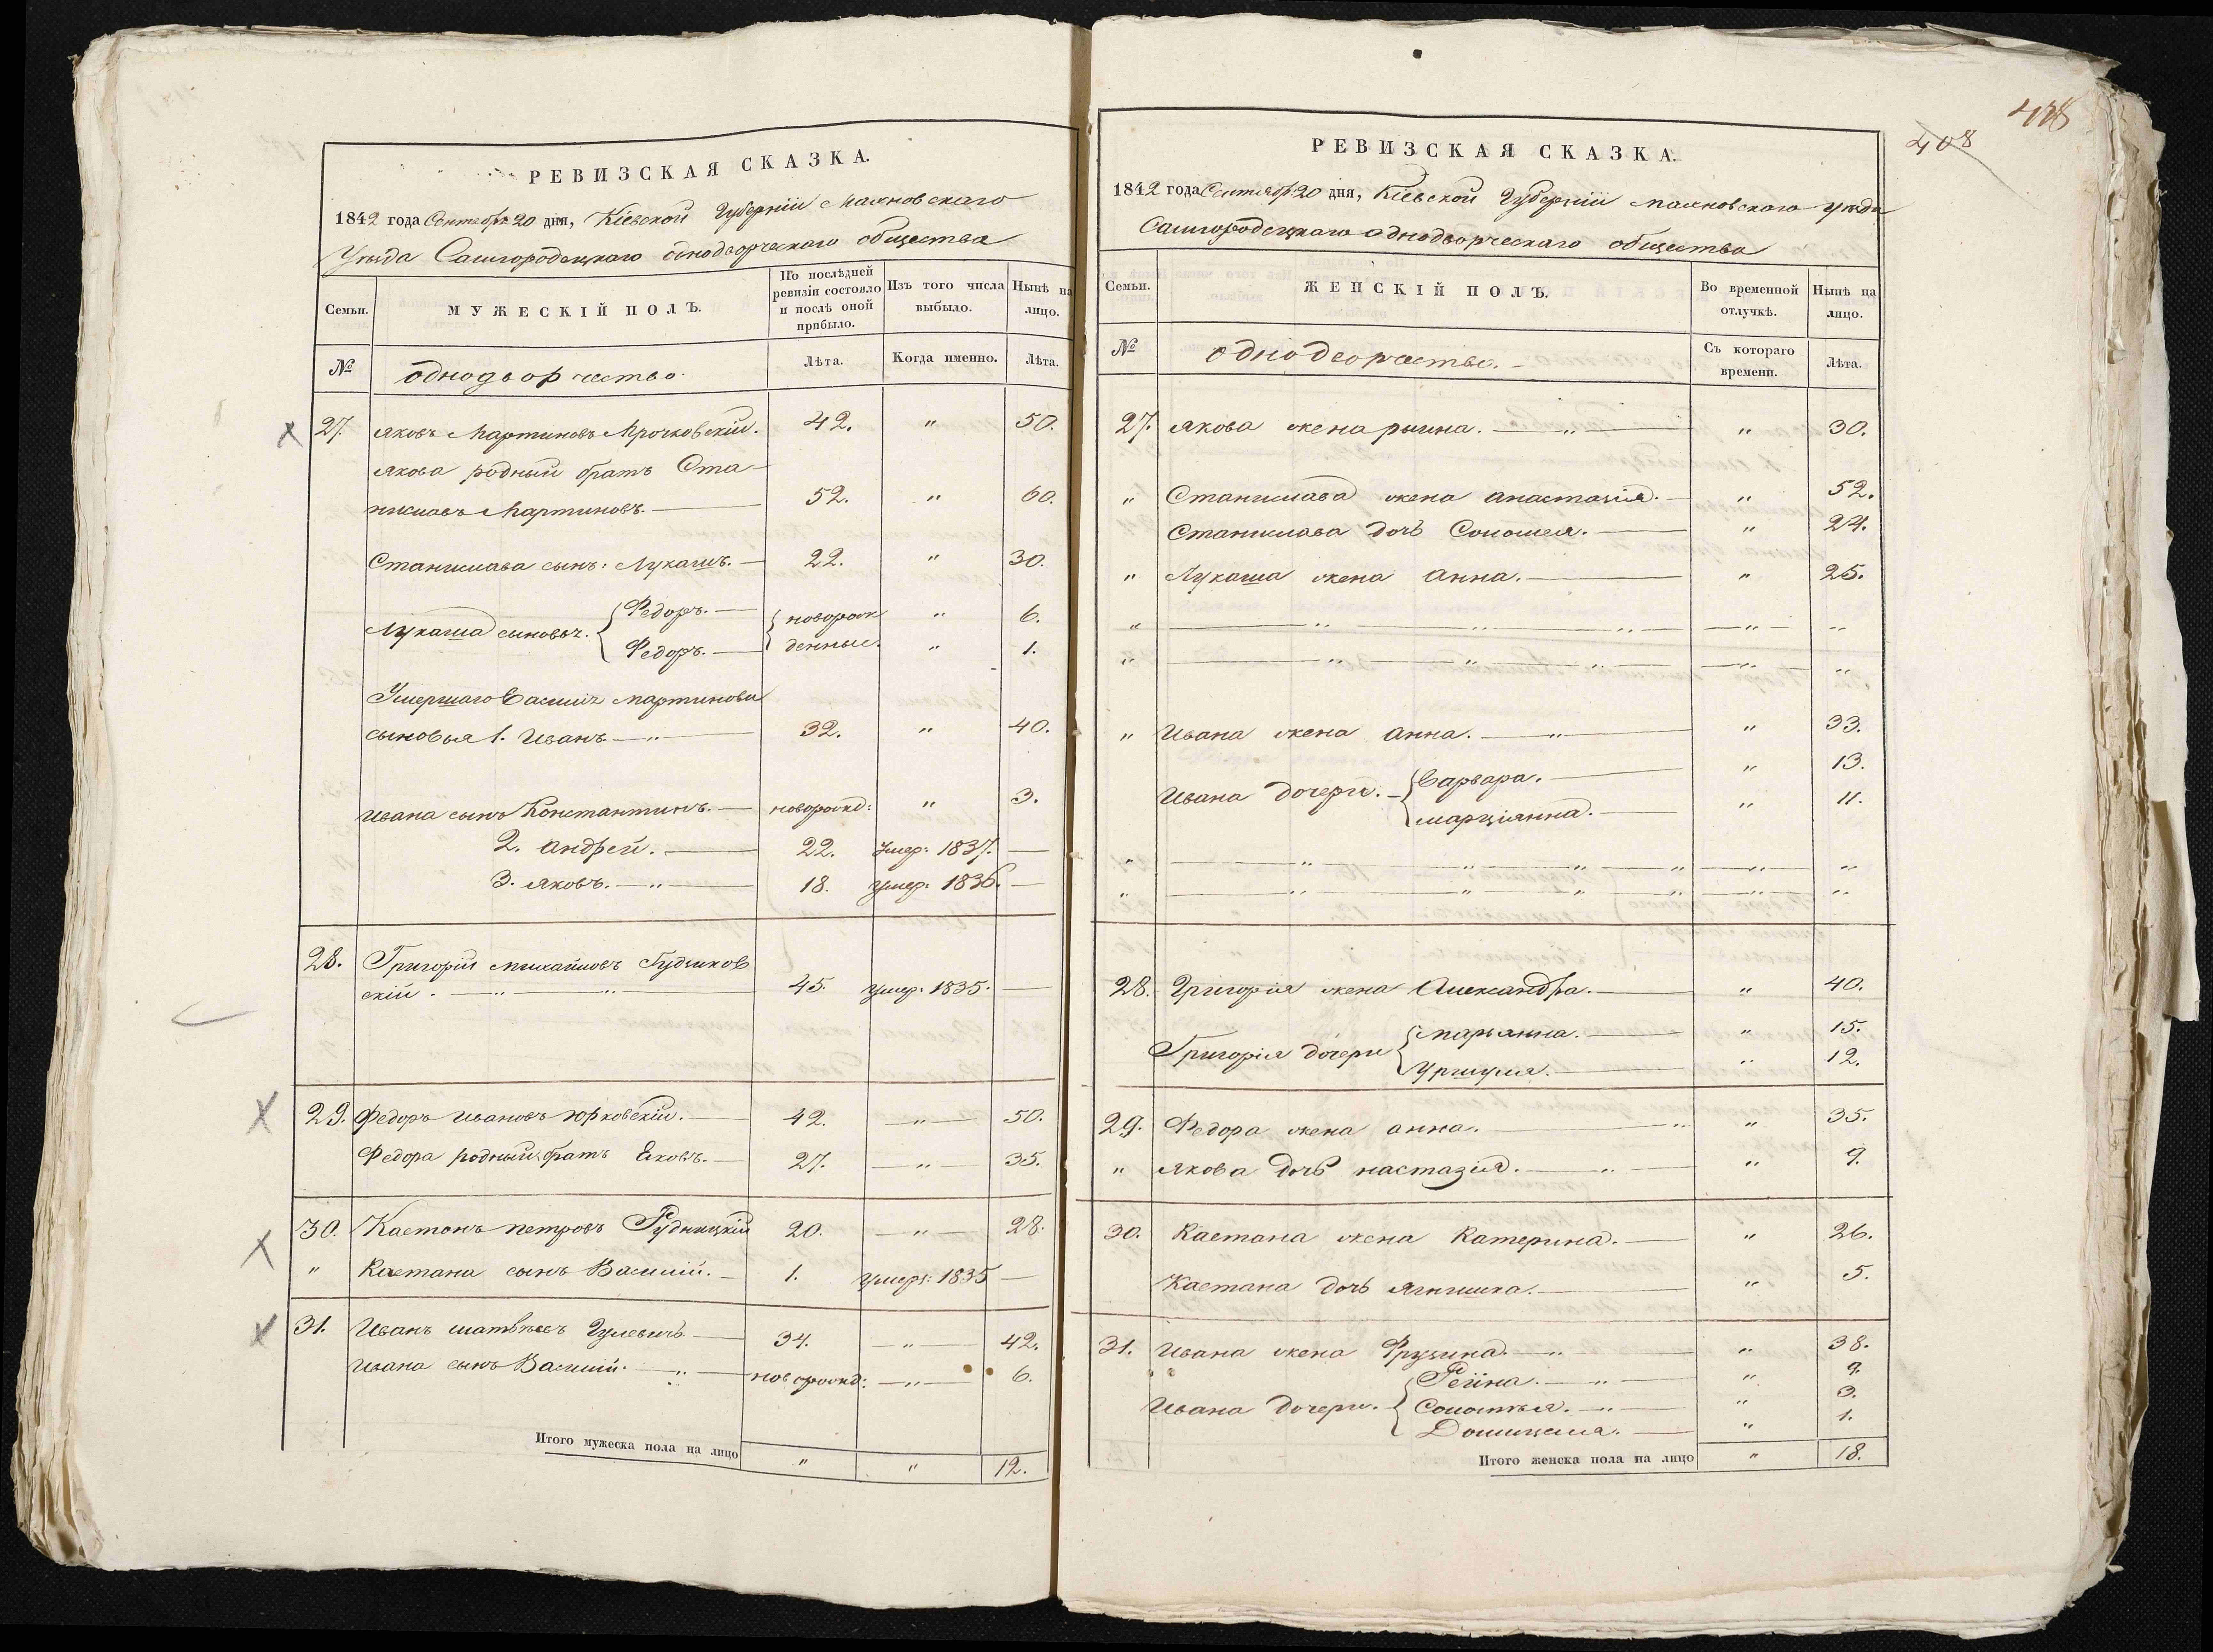 РЕВИЗСКАЯ СКАЗКА.
1842 года Сентября 20 дня, Кіевской Губерніи Махновскаго
Уѣзда Самгородецкаго однодворческаго общества
Семьи.
МУЖЕСКІЙ ПОЛЪ.
По послѣдней ревизіи состояло и послѣ оной прибыло.
Изъ того числа выбыло.
Нынѣ на лицо.
№
однодворчество
Лѣта.
Когда именно.
Лѣта.
27. Яковъ Мартиновъ Мрочковскій. 42. " 50.
Якова родный братъ Ста-
ниславъ Мартиновъ. 52. " 60.
Станислава сынъ: Лукашъ. 22. " 30.
Лукаша сыновья. { Федоръ. { новорож " 6.
Федоръ. денные. " 1.
Умершаго Василія Мартинова
сыновья 1. Иванъ " 32. " 40.
Ивана сынъ Константинъ. новорожд: " 3.
2. Андрей. 22. умер: 1837. —
3. Яковъ. " 18. умер: 1836. —
28. Григорій Михайловъ Гудзиков
скій. " " 45. умер: 1835. —
29. Федоръ Ивановъ Юрковскій. 42. " 50.
Федора родный братъ Яковъ. 27. " 35.
30. Каетанъ Петровъ Рудницкій 20. " 28.
" Каетана сынъ Василій. 1. умеръ: 1835 —
31. Иванъ Матвѣевъ Гулевичъ 34. " 42.
Ивана сынъ Василій. " новорожд: " 6.
Итого мужеска пола на лицо " " 12.
408
РЕВИЗСКАЯ СКАЗКА.
1842 года Сентября 20 дня, Кіевской Губерніи Махновскаго уѣзда
Самгородецкаго однодворческаго общества
Семьи.
ЖЕНСКІЙ ПОЛЪ.
Во временной отлучкѣ.
Нынѣ на лицо.
№
однодворчество.
Съ котораго времени.
Лѣта.
27. Якова жена " " 30.
" Станислава жена Анастазія. " 52.
Станислава дочь Соломея. " 24.
" Лукаша жена Анна. " 25.
" " " " " "
" " " " " "
" Ивана жена Анна. " " 33.
Ивана дочери. { Варвара. " 13.
Марціанна. " 11.
" " " " " " "
" " " " " " "
28. Григорія жена Александра. " 40.
Григорія дочери { Марьянна. " 15.
Уршуля. " 12.
29. Федора жена Анна. " " 35.
" Якова дочь Настазія. " " 9.
30. Каетана жена Катерина. " 26.
Каетана дочь Ягнишка. " 5.
31. Ивана жена Фрузина. " " 38.
Реина. " " 9.
Ивана дочери. { Соломея. " " 3.
Домицеля. " 1.
Итого женска пола на лицо " 18.